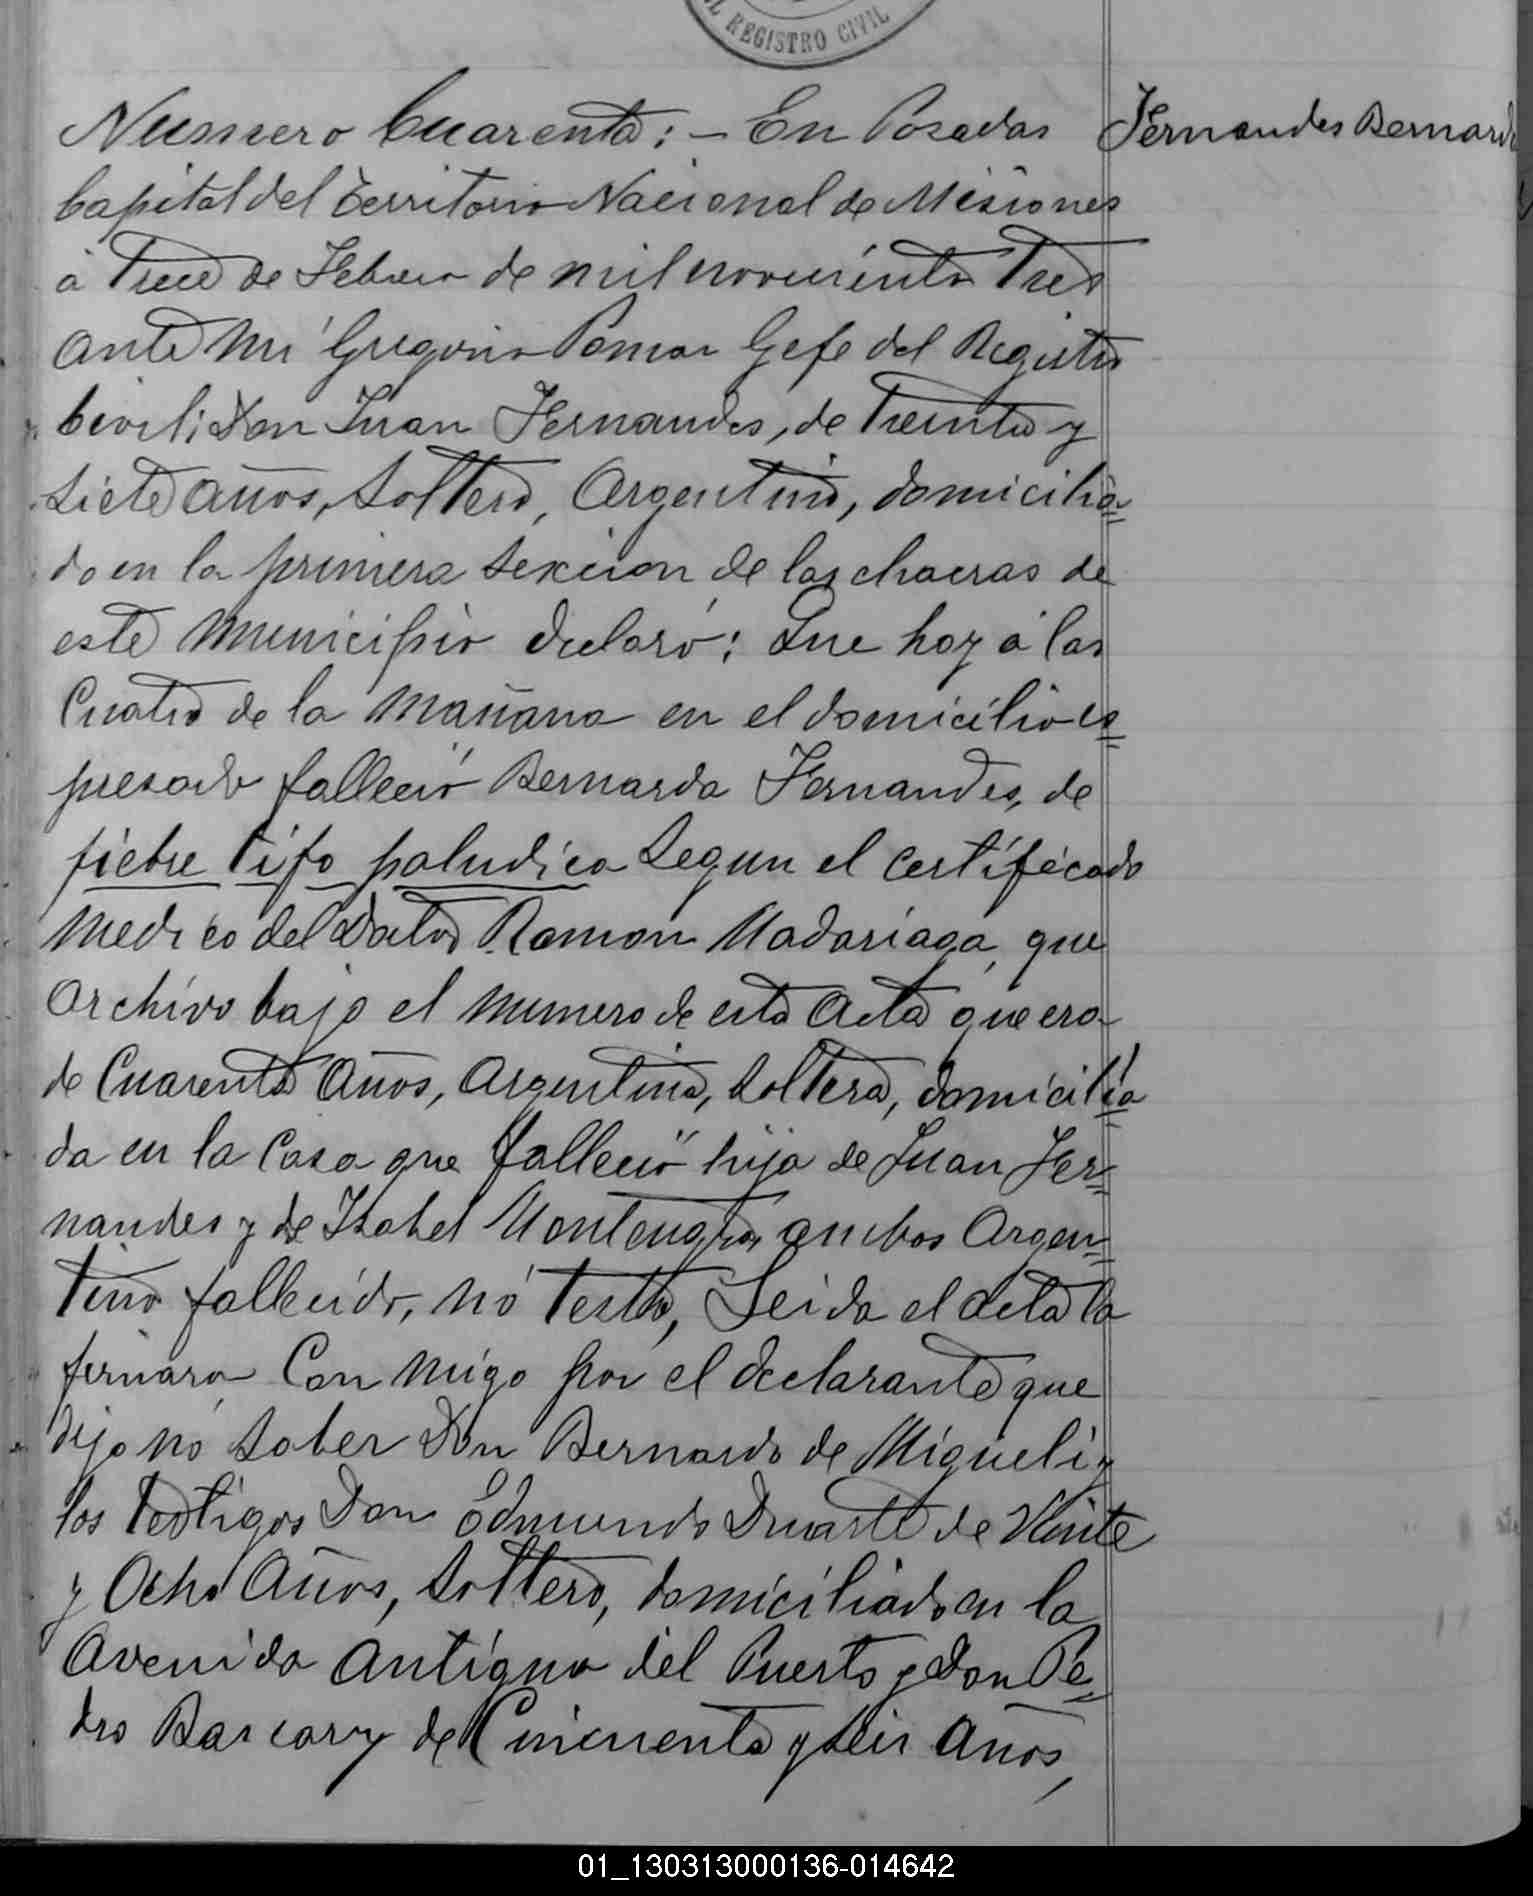 L REGISTRO CIVIL
Numero Cuarenta: - En Posadas
Fernandes Bernarda
Capital del Territorio Nacional de Misiones
á trece de Febrero de mil novecientos tres
ante mi Gregorio Pomar Gefe del Registro
Civil: Don Juan Fernandes, de treinta y
siete años, soltero, Argentino, domicilia=
do en la primera sexcion de las chacras de
este Municipio declaró: Que hoy á las
Cuatro de la Mañana en el domicilio es=
presado falleció Bernarda Fernandes, de
fiebre tifo paludica segun el certificado
Medico del Doctor Ramon Madariaga, que
archivo bajo el numero de esta acta que era
de Cuarenta años, Argentina, soltera, domicilia=
da en la Casa que falleció hija de Juan Fer=
nandes y de Isabel Montenegro, ambos Argen=
tino fallecido, nó testó, Leida el acta la
firmaron Con migo por el declarante que
dijo nó saber Don Bernardo de Migueli y
los testigos Don Edmundo Duarte de Veinte
y Ocho Años, soltero, domiciliado en la
Avenida Antigua del Puerto y Don Pe=
dro Bascary de Cincuenta y seis años,
01_130313000136-014642